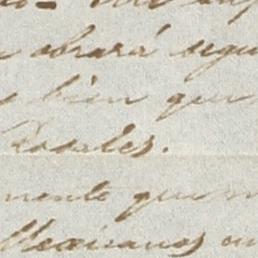 obrará segu
bien que
Rosales.
mente que
Mexicanos en